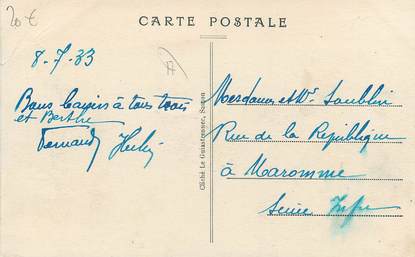 20 €
CARTE POSTALE
8-7-33
Bons baisers à tous trois
et Berthe
Fernand
Cliché Le Guiastrennec, Scaon
Mesdames et Mr
Rue de la République
à Maromme
Seine Infre